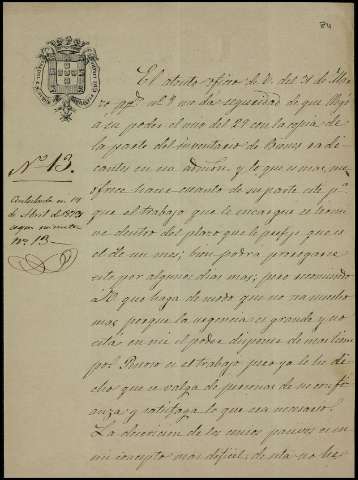 84
El atento oficio de V. del 31 de Mar-
zo ppº. me da seguridad de que llegó
á su poder el mio del 29 con la copia de
la parte del inventario de Bienes ra di
cantes en esa admon, y lo que es mas, me
ofrece hacer cuanto de su parte esté pª.
que el trabajo que le encargué se termi
ne dentro del plazo que le prefijé que es
el de un mes; bien podrá prorogarse
esto por algunos dias mas; pero recomiendo
á V. que haga de modo que no sea mucho
mas porque la urgencia es grande y no
está en mi el poder disponer de mas tiem
po. Penoso es el trabajo pero ya le he di
cho que se valga de personas de su confi
anza y satisfaga lo que sea necesario.
La descricion de los
mi concepto mas dificil; de esta no he
Nº 13.
Contestado en 14
de Abril de
segun minuta
nº 13